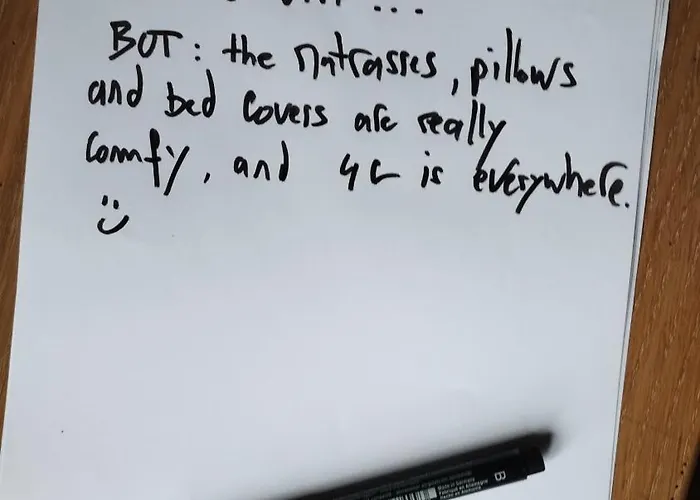 ...
BOT: the matrasses, pillows
and bed covers are really
comfy, and 4G is everywhere.
:)
B
Made in Germany
Fabriqué en Allemagne